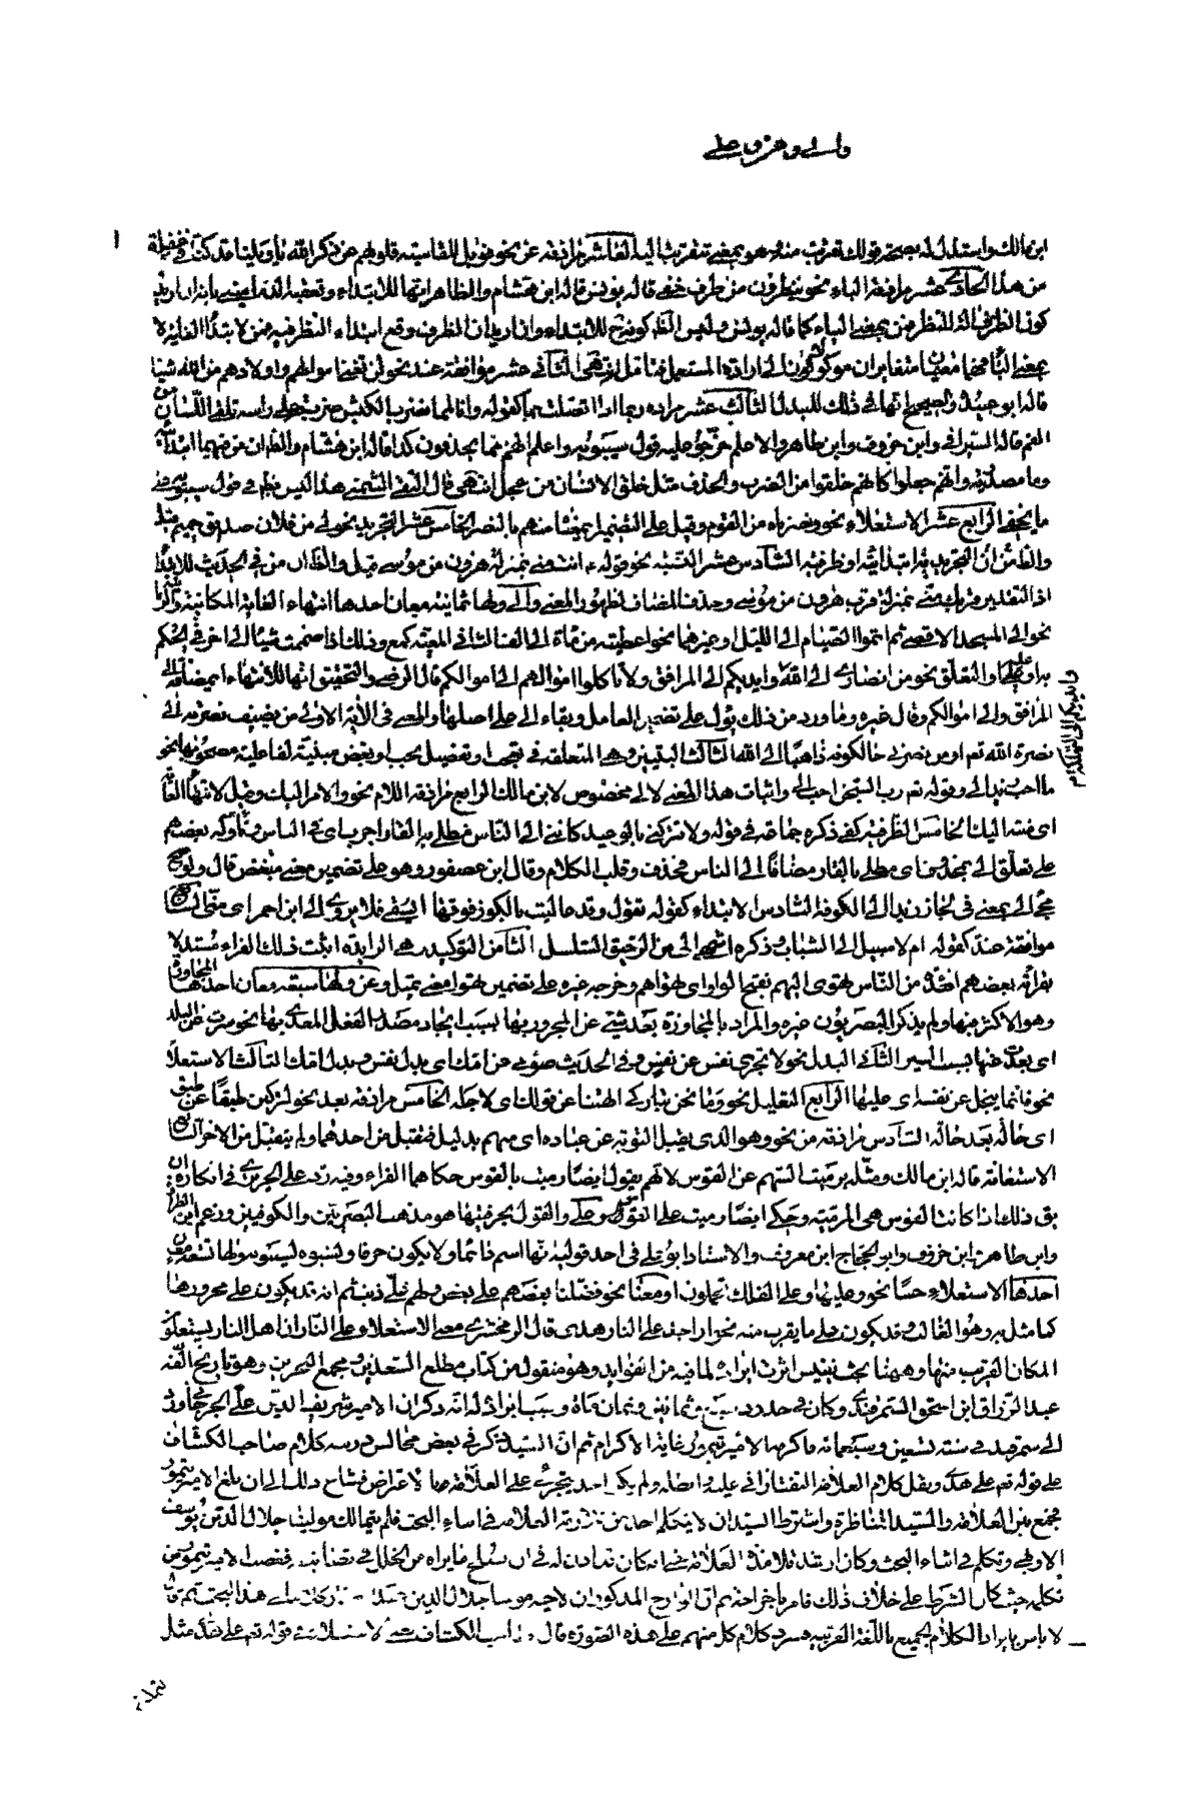 والى وعن وعلى
ابن مالك واستدل له بصحة قولك تقربت منه هو بمعنى تقربت اليه العاشر مرادفة عن نحو فويل للقاسية قلوبهم من ذكر الله يا ويلنا قد كنا في غفلة
من هذا الحادي عشر مرادفة الباء نحو ينظرون من طرف خفي قاله يونس قاله ابن هشام والظاهر انها للابتداء وتعقبه
كون الطرف آلة للنظر فمن بمعنى الباء كما قاله يونس وليس الظ كونها ح للابتداء وان اريد ان الطرف وقع ابتداء النظر فيه فمن لابتداء الغاية لا
بمعنى الباء فهما معنيان متغايران موكولان الى ارادة المستعمل فتأمل انتهى الثاني عشر موافقة عند نحو لن تغني عنهم اموالهم ولا اولادهم من الله شيئا
قاله ابو عبيدة والصحيح انها في ذلك للبدل الثالث عشر مرادفة ربما اذا اتصلت بما كقوله وانا لمما نضرب الكبش ضربة على راسه تلقي اللسان من
الفم قاله السيرافي وابن خروف وابن طاهر والاعلم وخرجوا عليه قول سيبويه واعلم انهم مما يحذفون كذا قاله ابن هشام والظ ان من فيهما ابتدائية
وما مصدرية وانهم جعلوا كانهم خلقوا من الضرب والحذف مثل خلق الانسان من عجل انتهى قال التقي الشمني هذا ليس بظ في قول سيبويه
ما يخفى الرابع عشر الاستعلاء نحو ونصرناه من القوم وقيل على التضمين اي منعناه منهم بالنصر الخامس عشر التجريد نحو لي من فلان صديق حميم
والظ من ان التجريدية ابتدائية او ظرفية السادس عشر التشبيه نحو قوله ع انت مني بمنزلة هرون من موسى قيل والظ ان من في الحديث للابتداء
اذ التقدير قربك مني بمنزلة قرب هرون من موسى وحذف المضاف لظهور المعنى والى ولها ثمانية معان احدها انتهاء الغاية المكانية والزمانية
نحو الى المسجد الاقصى ثم اتموا الصيام الى الليل او غيرهما نحو اعطيته من مائة الى الف الثاني المعية كمع وذلك اذا ضممت شيئا الى اخر في الحكم
به او عليه او التعلق نحو من انصاري الى الله وايديكم الى المرافق ولا تاكلوا اموالهم الى اموالكم قال الرضي والتحقيق انها للانتهاء اي مضافة الى
المرافق والى اموالكم وقال غيره وما ورد من ذلك يؤول على تضمين العامل وبقاء الى على اصلها والمعنى في الآية الاولى من يضيف نصرته الى
نصرة الله تع او من ينصرني حالكونه ذاهبا الى الله الثالث التبيين وهي المتعلقة في تعجب او تفضيل بحب او بغض مبينة لفاعلية مصحوبها نحو
ما احب زيدا الي وقوله تع رب السجن احب الي واثبات هذا المعنى لالى مخصوص لابن مالك الرابع مرادفة اللام نحو والامر اليك وقيل لانتهاء الغاية
اي منته اليك الخامس الظرفية كفي ذكره جماعة في قوله ولا تتركني بالوعيد كانني الى الناس مطلي به القار اجرب اي في الناس وتأوله بعضهم
على تعلق الى بمحذوف اي مطلي بالقار مضافا الى الناس فحذف وقلب الكلام وقال ابن عصفور وهو على تضمين معنى مبغض قال ولو صح
مجيء الى بمعنى في لجاز زيد الى الكوفة السادس الابتداء كقوله تقول وقد عاليت بالكور فوقها ايسقى فلا يروى الي ابن احمرا اي مني السابع
موافقة عند كقوله ام لا سبيل الى الشباب وذكره اشهى الي من الرحيق السلسل الثامن التوكيد وهي الزائدة اثبت ذلك الفراء مستدلا
بقراءة بعضهم افئدة من الناس تهوى اليهم بفتح الواو اي تهواهم وخرجه غيره على تضمين تهوى معنى تميل وعن ولها سبعة معان احدها المجاوزة
وهو الاكثر منها ولم يذكر البصريون غيره والمراد بالمجاوزة بعد شيء عن المجرور بها بسبب ايجاد مصدر الفعل المعدى بها نحو سرت عن البلد
اي بعدت عنها بسبب السير الثاني البدل نحو لا تجزي نفس عن نفس وفي الحديث صومي عن امك اي بدل نفس وبدل امك الثالث الاستعلاء
نحو فانما يبخل عن نفسه اي عليها الرابع التعليل نحو وما نحن بتاركي الهتنا عن قولك اي لاجله الخامس مرادفة بعد نحو لتركبن طبقا عن طبق
اي حالة بعد حالة السادس مرادفة من نحو وهو الذي يقبل التوبة عن عباده اي منهم بدليل فتقبل من احدهما ولم يتقبل من الاخر السابع
الاستعانة قاله ابن مالك ومثله برميت السهم عن القوس لانهم يقولون ايضا رميت بالقوس حكاهما الفراء وفيه رد على الحريري في انكاره ان
يق ذلك الا اذا كانت القوس هي المرمية وحكى ايضا رميت على القوس وعلى والقول بحرفيتها هو مذهب البصريين والكوفيين وزعم ابن الطراوة
وابن طاهر وابن خروف وابو الحجاج ابن معزوف والاستاد ابو علي في احد قوليه انها اسم دائما ولا يكون حرفا ونسبوه لسيبويه ولها تسعة معان
احدها الاستعلاء حسا نحو وعليها وعلى الفلك تحملون او معنا نحو فضلنا بعضهم على بعض ولهم علي ذنب ثم انه قد يكون على مجرورها
كما مثل به وهو الغالب وقد يكون على ما يقرب منه نحو او اجد على النار هدى قال الزمخشري معنى الاستعلاء على النار ان اهل النار يستعلون
المكان القريب منها وههنا بحث نفيس اثرت ايراده لما فيه من الفوايد وهو منقول من كتاب مطلع السعدين ومجمع البحرين وهو تاريخ الفه
عبد الرزاق ابن اسحق السمرقندي وكان في حدود سبع وثمانين وثمان مائة وسبب ايراده له انه ذكر ان الامير شريف الدين علي الجرجاني ورد
الى سمرقند في سنة تسعين وسبعمائة فاكرمه الامير تيمور غاية الاكرام ثم ان السيد ذكر في بعض مجالس درسه كلام صاحب الكشاف
على قوله تع على هدى ونقل كلام العلامة التفتازاني عليه ولم يكن احد يتجرى على العلامة بالاعتراض فشاع ذلك الى ان بلغ الامير تيمور
فجمع بين العلامة والسيد للمناظرة واشترط السيد ان لا يتكلم احد من تلامذة العلامة في اثناء البحث فلم يتمالك مولينا جلال الدين يوسف
الاوبهي وتكلم في اثناء البحث وكان ارشد تلامذة العلامة
تكلمه حيث كان الشرط على خلاف ذلك فامر باخراجه ثم ان
لا باس بايراد الكلام الجميع باللغة العربية وسرد كلام كل منهم على هذه الصورة قال صاحب الكشاف معنى الاستعلاء في قوله تع على هدى مثل
وايديكم الى التهلكة م